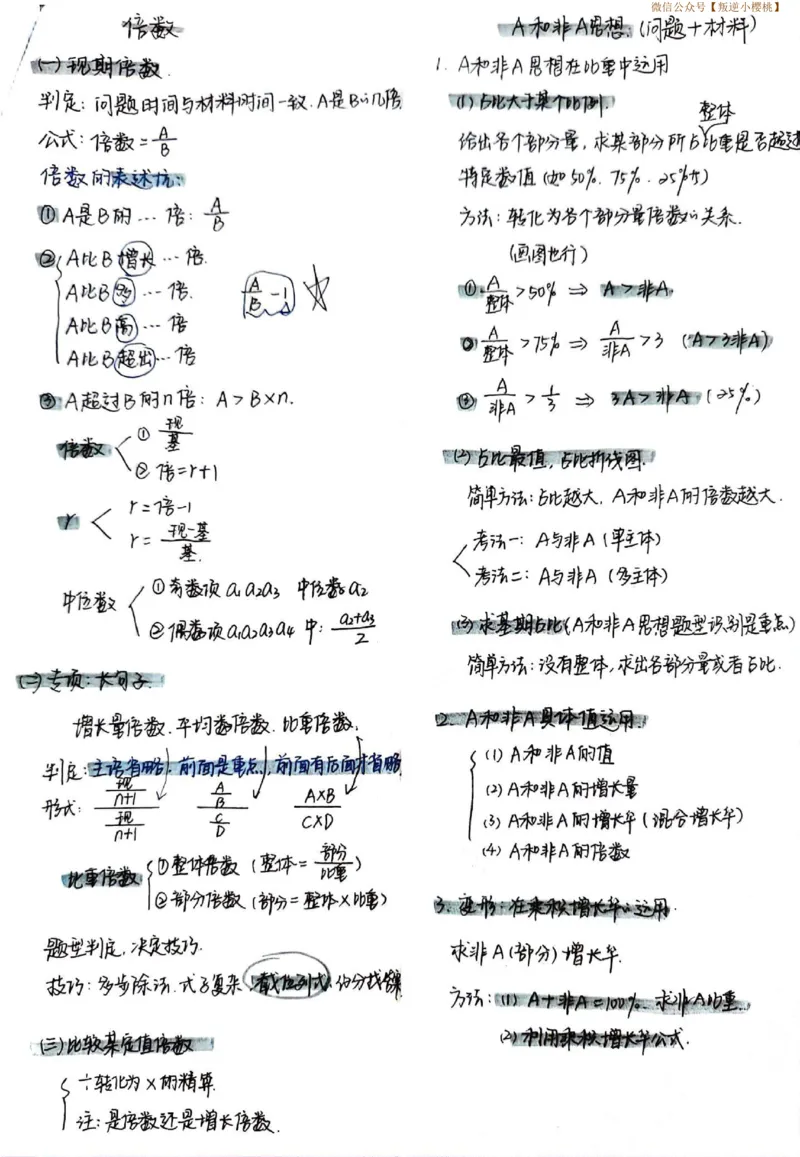 微信公众号【叛逆小樱桃】
倍数
(一)现期倍数.
判定：问题时间与材料时间一致.A是B的几倍
公式：倍数=A/B
倍数的表述坑：
①A是B的…倍：A/B
②A比B增长…倍.
A比B多…倍.
A比B高…倍
A比B超出…倍
A/B-1 ☆
③A超过B的n倍：A>B×n.
倍数
①现/基
②倍=r+1
r
r=倍-1
r=现-基/基.
中位数
①奇数项a₁a₂a₃ 中位数a₂
②偶数项a₁a₂a₃a₄ 中：a₂+a₃/2
(二)专项：长句子.
增长量倍数.平均数倍数.比重倍数.
判定：主语省略,前面是重点,前面有后面才省略
形式：现/n+1/现/n+1 A/B/C/D A×B/C×D
比重倍数
①整体倍数(整体=部分/比重)
②部分倍数(部分=整体×比重)
题型判定,决定技巧.
技巧：多步除法.式子复杂.截位列式.约分找错
(三)比较某定值倍数
÷转化为×的精算.
注：是倍数还是增长倍数.
A和非A思想.(问题+材料)
1. A和非A思想在比重中运用
(1)占比大于某个比例.
整体
给出各个部分量,求某部分所占比重是否超过
特定数值(如50%.75%.25%打)
方法：转化为各个部分量倍数的关系.
(画图也行)
①A/整体>50% ⇒ A>非A.
②A/整体>75% ⇒ A/非A>3 (A>3非A)
③A/非A>1/3 ⇒ 3A>非A.(25%)
(2)占比最值,占比折线图.
简单方法：占比越大,A和非A的倍数越大.
考法一：A与非A(单主体)
考法二：A与非A(多主体)
(3)求基期占比(A和非A思想题型识别是重点)
简单方法：没有整体,求出各部分量或者占比.
2. A和非A具体值运用.
(1)A和非A的值
(2)A和非A的增长量
(3)A和非A的增长率(混合增长率)
(4)A和非A的倍数
3. 变形：在乘积增长率的运用.
求非A(部分)增长率.
方法：(1)A+非A=100%.求非A比重.
(2)利用乘积增长率公式.